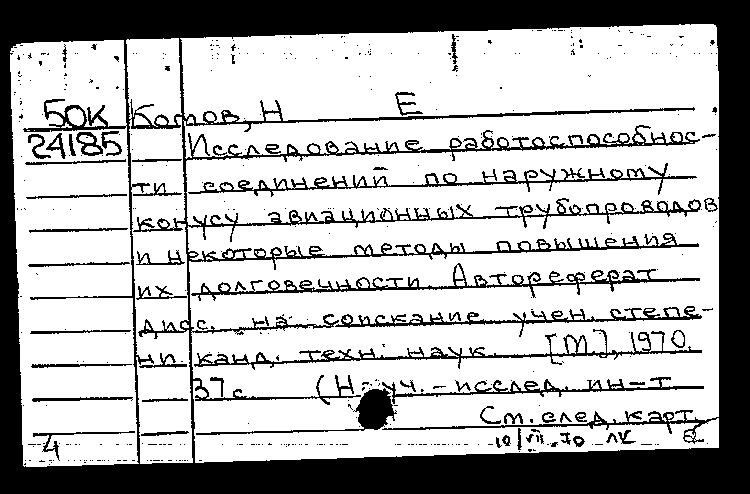 50К Котов, Н Е
24185 Исследование работоспособнос-
ти соединений по наружному
конусу авиационных трубопроводов
и некоторые методы повышения
их долговечности. Автореферат
дисс. на соискание учен. степе-
ни канд. техн. наук. [М.], 1970.
37с. (Науч.-исслед. ин-т
См. след. карт.
4 10/VII.70 ЛК